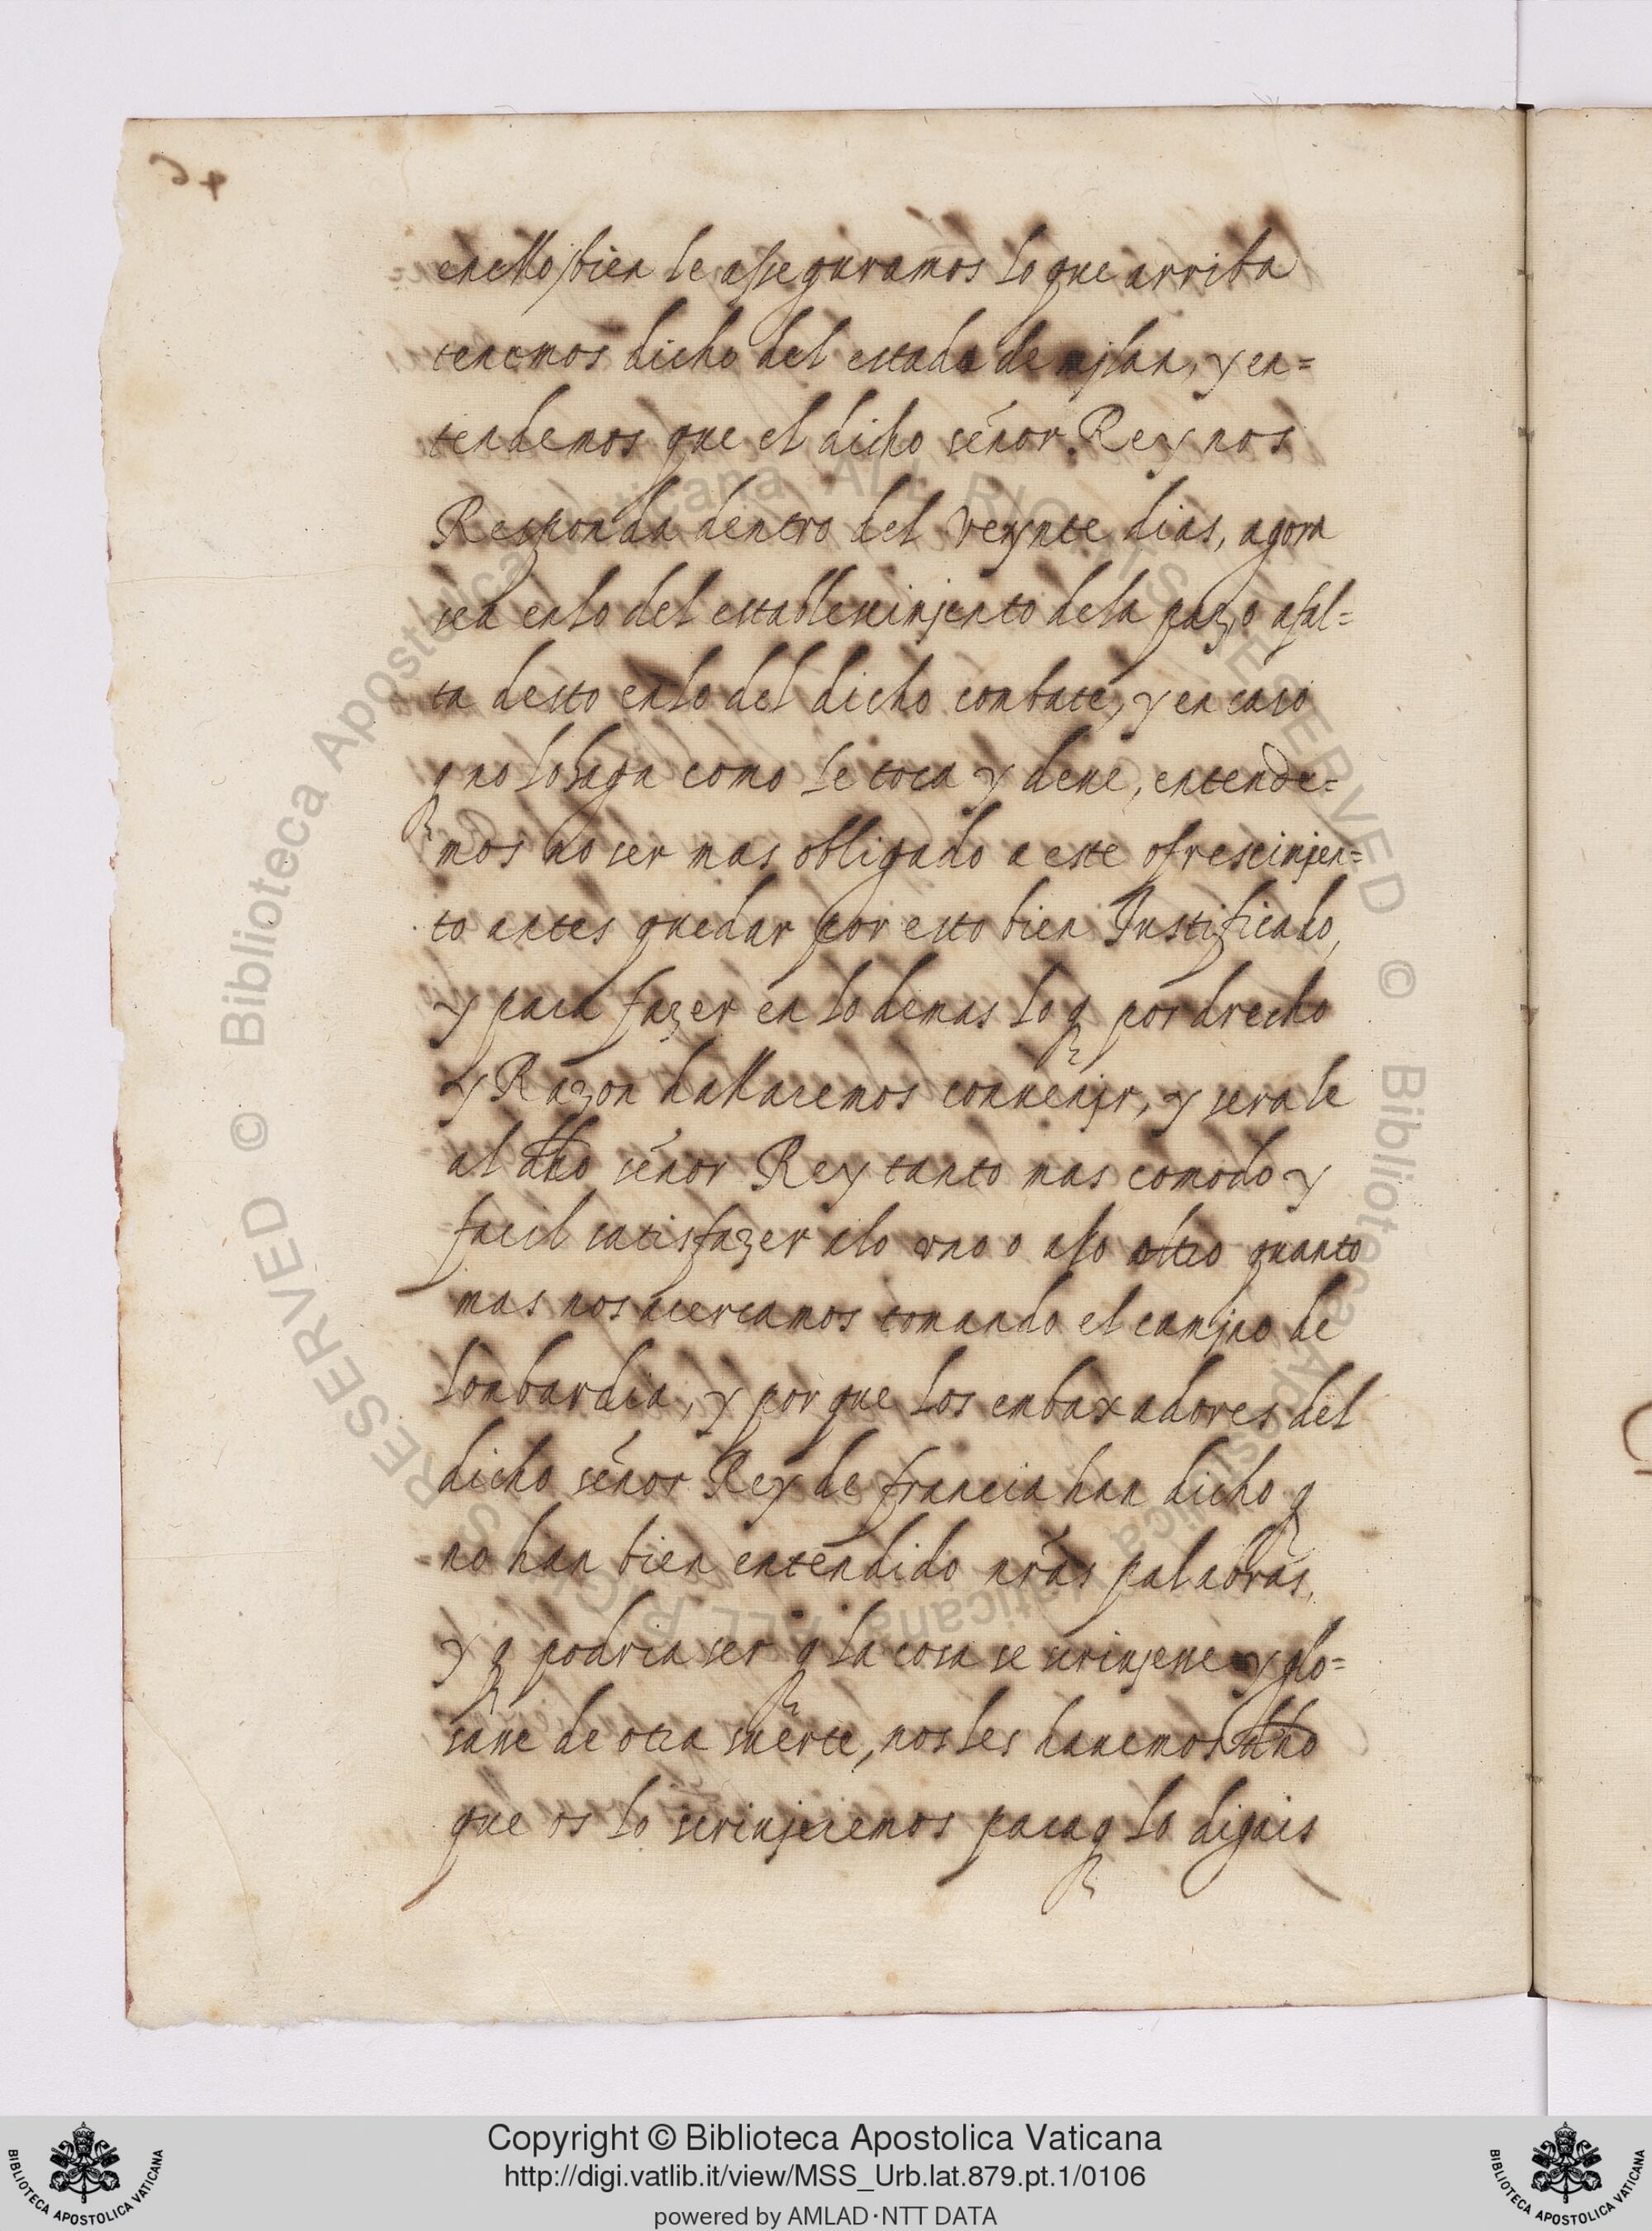 enello, bien le asseguramos lo que arriba
tenemos dicho del estado de mjlan, y en=
tendemos que el dicho señor Rey nos
Responda dentro del veynte dias, agora
sea en lo del establescimjento dela paz, o afal=
ta desto en lo del dicho conbate, y en caso
q no lo haga como le toca y deue, entende=
mos no ser mas obligado a este ofrescimjen=
to antes quedar por esto bien Justificado,
y para fazer en lo demas lo q por drecho
y Razon hallaremos conuenjr, y sera le
al dho señor Rey tanto mas comodo y
facil satisfazer alo vno o alo otro quanto
mas nos acercamos tomando el camjno de
lonbardia, y por que los enbaxadores del
dicho señor Rey de francia han dicho q
no han bien entendido nras palabras,
y q podria ser q la cosa se scriujesse y glo=
sasse de otra suerte, nos les hauemos dho
que os lo scriujremos para q lo digais
Copyright © Biblioteca Apostolica Vaticana
http://digi.vatlib.it/view/MSS_Urb.lat.879.pt.1/0106
powered by AMLAD·NTT DATA